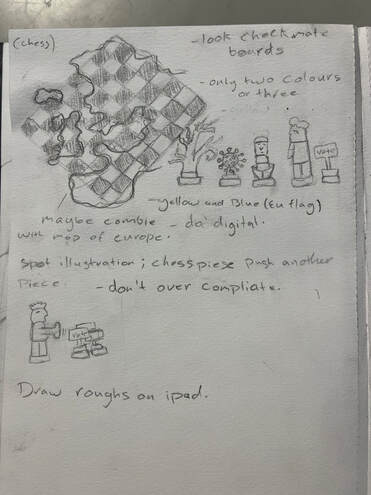 (chess)
-look checkmate
boards
-only two colours
or three
vote
-yellow and Blue (Eu flag)
maybe combie
with map of europe.
- do digital.
spot illustration; chesspiese push another
piece.
-don't over compliate.
vote
Draw roughs on ipad.